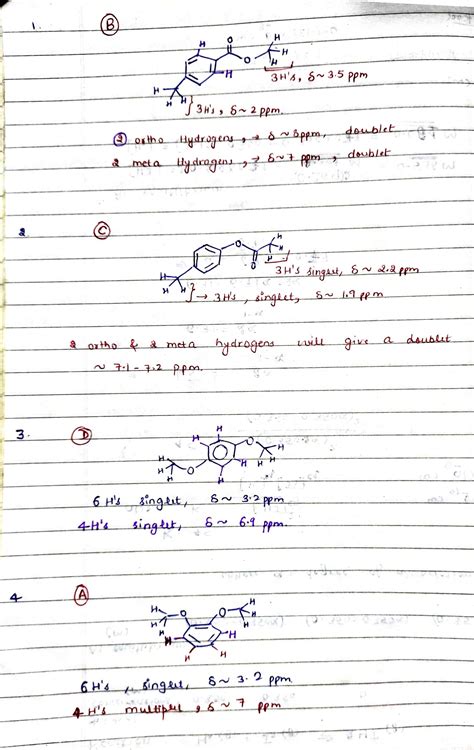 1. B
3H's, δ~3.5 ppm
3H's, δ~2 ppm.
2 ortho Hydrogens, → δ~8ppm, doublet
2 meta Hydrogens, → δ~7 ppm, doublet
2 C
3H's singlet, δ~2.2ppm
→ 3H's, singlet, δ~1.9ppm
2 ortho & 2 meta hydrogens will give a doublet
~ 7.1-7.2 ppm.
3. D
6H's singlet, δ~3.2ppm
4H's singlet, δ~6.9 ppm.
4 A
6H's, singlet, δ~3.2 ppm
4H's multiplet, δ~7 ppm